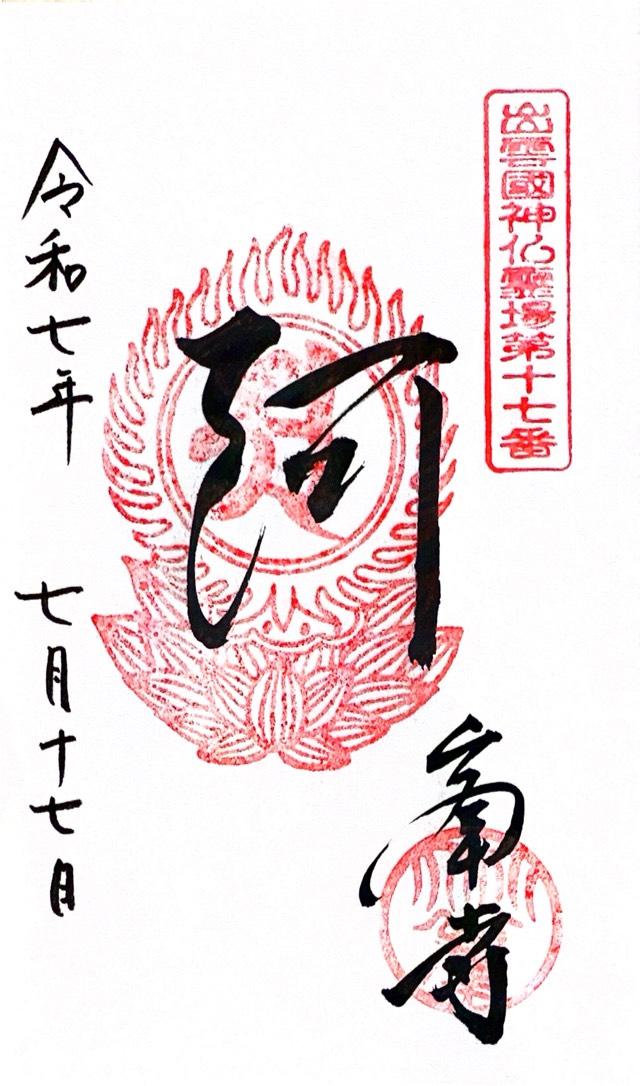 出雲國神仏霊場第十七番
阿
峯寺
令和七年 七月十七日